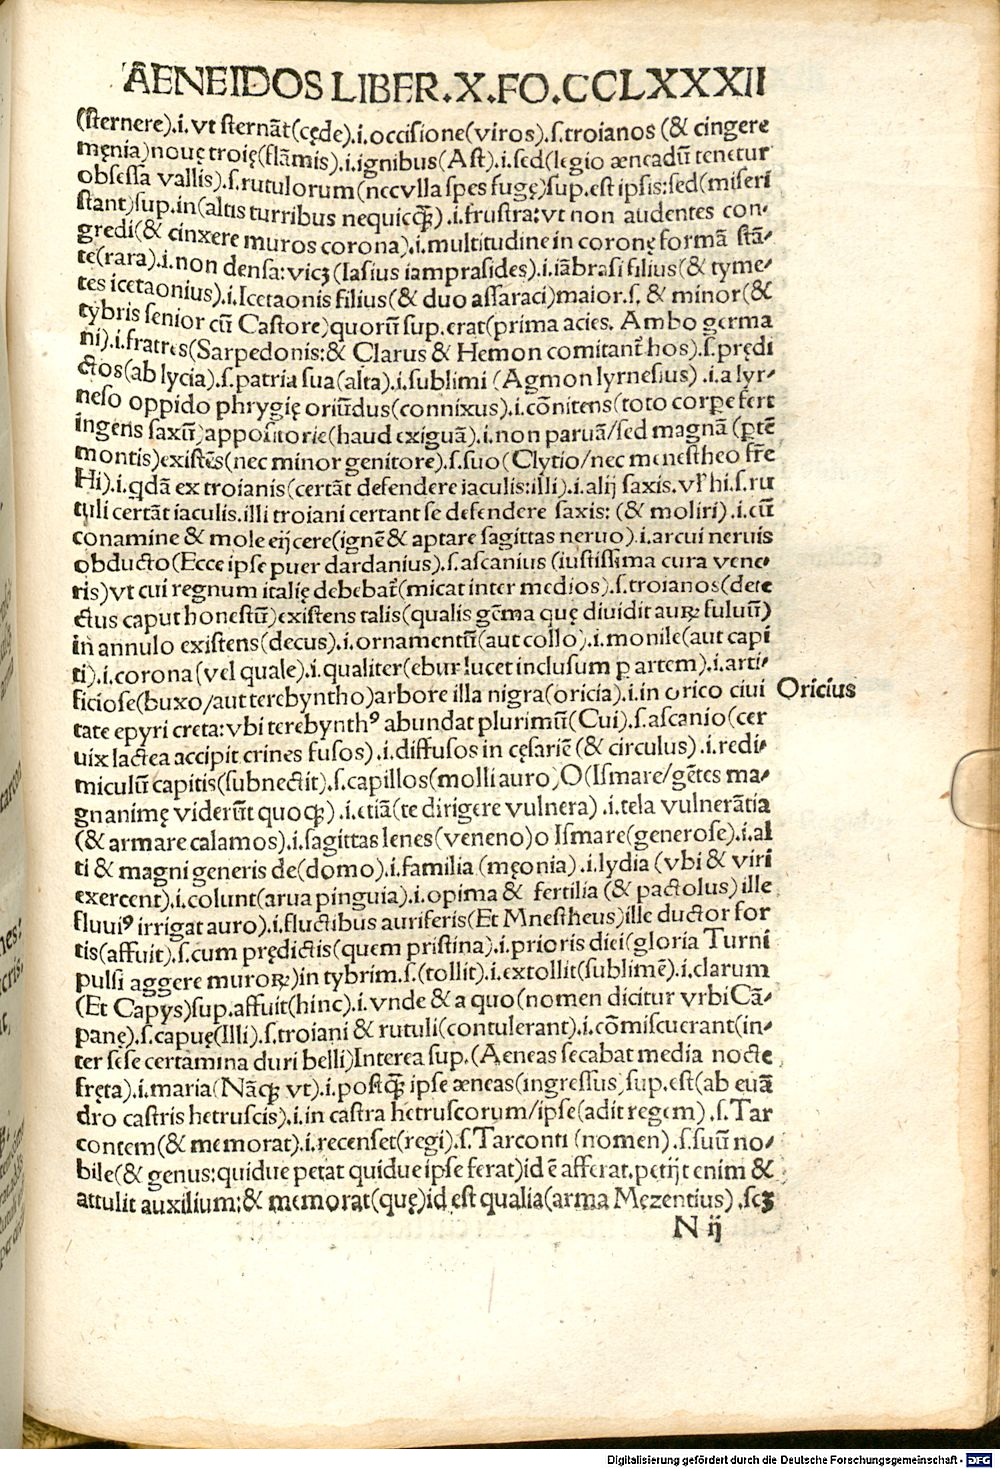 AENEIDOS LIBER.X.FO.CCLXXXII
(sternere).i.vt sternãt(cęde).i.occisione(viros).s.troianos (& cingere
męnia)nouę troię(flãmis).i.ignibus(Ast).i.sed(legio æneadũ tenetur
obsessa vallis).s.rutulorum(nec vlla spes fugę)sup.est ipsis:sed(miseri
stant)sup.in(altis turribus nequicꝗ̃).i.frustra:vt non audentes con-
gredi(& cinxere muros corona).i.multitudine in coronę formã stã-
te(rara).i.non densa:vicꝫ(Iasius iamprasides).i.iãbrasi filius(& tyme-
tes icetaonius).i.Icetaonis filius(& duo assaraci)maior.s. & minor(&
tybris senior cũ Castore)quorũ sup.erat(prima acies. Ambo germa
ni).i.fratres(Sarpedonis:& Clarus & Hemon comitant᷑ hos).s.prędi
ctos(ab lycia).s.patria sua(alta).i.sublimi (Agmon lyrnesius) .i.a lyr-
neso oppido phrygię oriũdus(connixus).i.cõnitens(toto corꝑe fert
ingens saxũ)appositorie(haud exiguã).i.non paruã/sed magnã (ptẽ
montis)existẽs(nec minor genitore).s.suo(Clytio/nec menestheo frẽ
Hi).i.qdã ex troianis(certãt defendere iaculis:illi).i.alij saxis.vl' hi.s.ru
tuli certãt iaculis.illi troiani certant se defendere saxis: (& moliri).i.cũ
conamine & mole eijcere(ignẽ & aptare sagittas neruo).i.arcui neruis
obducto(Ecce ipse puer dardanius).s.ascanius (iustissima cura vene-
ris)vt cui regnum italię debebat᷑(micat inter medios).s.troianos(dete
ctus caput honestũ)existens talis(qualis gẽma quę diuidit auꝝ fuluũ)
in annulo existens(decus).i.ornamentũ(aut collo).i.monile(aut capi
ti).i.corona(vel quale).i.qualiter(ebur lucet inclusum ꝑ artem).i.arti-
ficiose(buxo/aut terebyntho)arbore illa nigra(oricia).i.in orico ciui
Oricius
tate epyri creta:vbi terebynthꝰ abundat plurimũ(Cui).s.ascanio(cer
uix lactea accipit crines fusos).i.diffusos in cęsariẽ(& circulus).i.redi-
miculũ capitis(subnectit).s.capillos(molli auro)O(Ismare/gẽtes ma-
gnanimę viderũt quoqꝫ).i.etiã(te dirigere vulnera).i.tela vulnerãtia
(& armare calamos).i.sagittas lenes(veneno)o Ismare(generose).i.al
ti & magni generis de(domo).i.familia (męonia).i.lydia (vbi & viri
exercent).i.colunt(arua pinguia).i.opima & fertilia (& pactolus)ille
fluuiꝰ irrigat auro).i.fluctibus auriferis(Et Mnestheus)ille ductor for
tis(affuit).s.cum prędictis(quem pristina).i.prioris diei(gloria Turni
pulsi aggere muroꝝ)in tybrim.s.(tollit).i.extollit(sublimẽ).i.clarum
(Et Capys)sup.affuit(hinc).i.vnde & a quo(nomen dicitur vrbi Cã-
panę).s.capuę(Illi).s.troiani & rutuli(contulerant).i.cõmiscuerant(in-
ter sese certamina duri belli)Interea sup.(Aeneas secabat media nocte
fręta).i.maria(Nãqꝫ vt).i.postꝗ̃ ipse æneas(ingressus)sup.est(ab euã
dro castris hetruscis).i.in castra hetruscorum/ipse(adit regem).s.Tar
contem(& memorat).i.recenset(regi).s.Tarconti (nomen).s.suũ no-
bile(& genus:quidue petat quidue ipse ferat)id ẽ afferat.petijt enim &
attulit auxilium:& memorat(quę)id est qualia(arma Mezentius).scꝫ
N ij
Digitalisierung gefördert durch die Deutsche Forschungsgemeinschaft - DFG